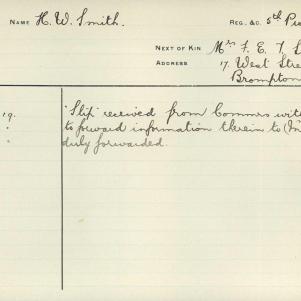 NAME H. W. Smith. REG. &C. 5th
NEXT OF KIN Mrs F. E. T. S
ADDRESS 17, West Stre
Brompton
19. "Slip" received from Commrs with
to forward information therein to (In
duly forwarded.